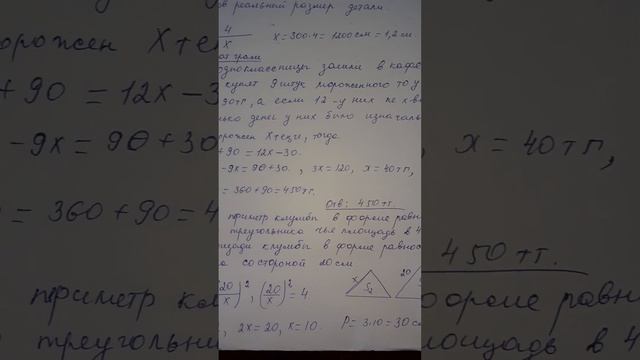 реальный размер детали.
4
x
x = 300·4 = 1200 см = 1,2 м
одноклассницы зашли в кафе
купят 9 штук мороженного то у
90тг, а если 12 - у них не хва
денег у них было изначаль
орожен x тенге, тогда
+ 90 = 12x - 30.
-9x = 90 + 30. , 3x = 120, x = 40тг,
= 360 + 90 = 450тг.
Отв: 450тг.
клумбы в форме равн
треугольника чья площадь в 4
клумбы в форме равнос
со стороной 20 см
(20/x)², (20/x)² = 4
x
S₂
20
2x = 20, x = 10.
P = 3·10 = 30 см
орожен x тенге
+ 90 = 12x - 3
-9x = 90 + 30.
= 360 + 90 = 4
x = 40тг,
450тг.
форме равн
треугольн
площадь в 4